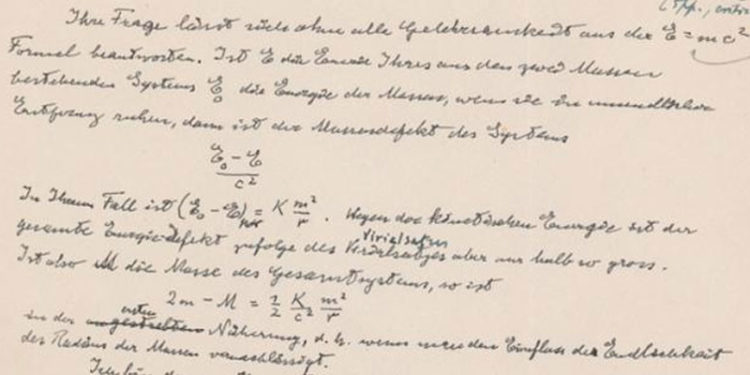 Ihre Frage lässt sich ohne alle Gelehrsamkeit aus der E = mc²
Formel beantworten. Ist E die Energie Ihres aus den zwei Massen
bestehenden Systems E₀ die Energie der Massen, wenn sie in unendlicher
Entfernung ruhen, dann ist der Massendefekt des Systems
E₀ - E
c²
In Ihrem Fall ist (E₀ - E) = K m²/r. Wegen der kinetischen Energie ist der
Virialsatzes
gesamte Energie-Defekt zufolge des Virialsatzes aber nur halb so gross.
Ist also M die Masse des Gesamtsystems, so ist
2m - M = 1/2 K/c² m²/r
ersten
in der Näherung, d. h. wenn man den Einfluss der Endlichkeit
des Radius der Massen vernachlässigt.